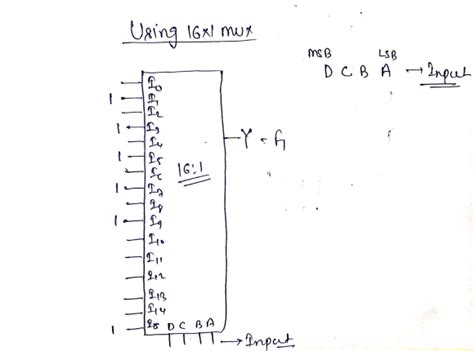 Using 16x1 mux
MSB LSB
D C B A → Input
I0
1 I1
I2
1 I3
I4
1 I5
I6
1 I7
I8
1 I9
I10
I11
I12
I13
I14
1 I15
16:1
Y = F1
D C B A
→ Input